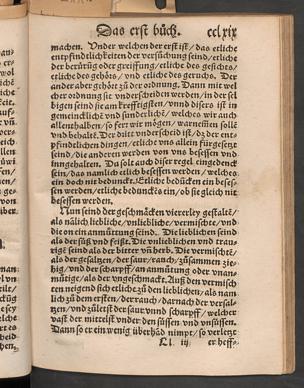 Das erst büch. cclxix
machen. Vnder welchen der erst ist / das etliche
entpfindlichkeiten der versůchung seind / etliche
der berürůg oder greiffung / etliche des gesichts /
etliche des gehörs / vnd etliche des geruchs. Der
ander aber gehört zů der ordnung. Dann mit wel
cher ordnung sie vnderscheiden werden / in der sel
bigen seind sie am krefftigsten / vnnd disers ist in
gemeinclich vnd sunderlich / welches wir auch
allenthalben / so fert wir mögen / warnemen sollē
vnd behaltē. Der drit vnderscheid ist / dz der ent-
pfindlichen dingen / etliche vns allein fürgesetzt
seind / die anderen werden von vns besessen vnd
inngehaltē. Da solt auch diser regel eingedenck
ein / das namlich etlich besessen werden / welches
ein doch nit bedunckt. Etliche bedücken ein beses-
sen werden / etliche beduncktē ein / ob sie gleich nit
besessen werden.
Nun seind der geschmäcken viererley gestalt /
als nälich liebliche / vnliebliche / vermischte / vnd
die on ein anmůttung seind. Die lieblichen seind
als der süß vnd feißt. Die vnlieblichen vnd trau-
rige seind als der bitter vnd herb. Die vermischtē /
als der gesaltzen / der saur / rauch / zůsammen zie-
hig / vnd der scharpff / an anmůtung oder vnan-
mütige / als der vngeschmackt. Auß den vermisch
ten neigend sich etliche zů den lieblichen / als nam
lich zů dem ersten / der rauch / darnach der versal-
tzen / vnd zůletst der saur vnnd scharpff / welcher
vast der mittelst vnder den süssen vnd vnsüssen.
Dann so er ein wenig überhād nimpt / so verletzt
Ll iij er hefft-